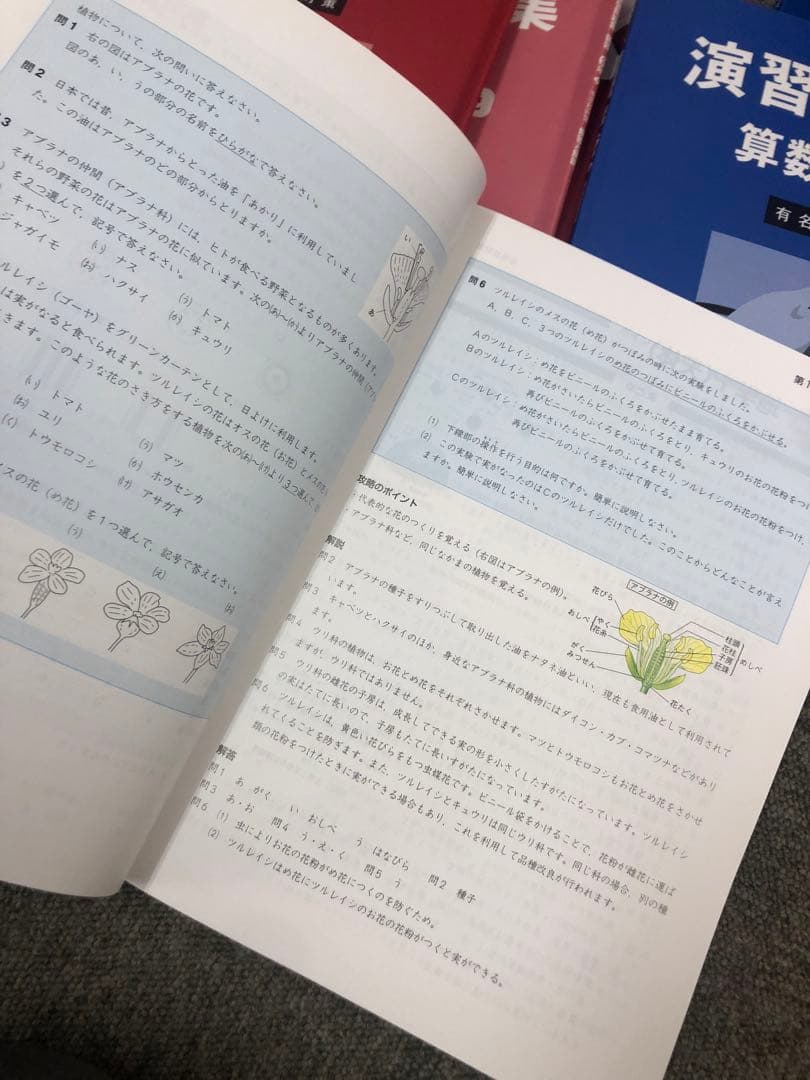 集
演習
算数
有名
植物について、次の問いに答えなさい。
問1 右の図はアブラナの花です。
図のあ、い、うの部分の名前をひらがなで答えなさい。
問2 日本では昔、アブラナからとった油を「あかり」に利用していまし
た。この油はアブラナのどの部分からとりますか。
3 アブラナの仲間（アブラナ科）には、ヒトが食べる野菜となるものが多くあります。
それらの野菜の花はアブラナの花に似ています。次の(あ)～(か)よりアブラナの仲間（アブ
を2つ選んで、記号で答えなさい。
キャベツ (い) ナス (う) トマト
ジャガイモ (お) ハクサイ (か) キュウリ
い
あ
ルレイシ（ゴーヤ）をグリーンカーテンとして、日よけに利用します。
は実がなると食べられます。ツルレイシの花はオスの花（お花）とメスの花
きます。このような花のさき方をする植物を次の(あ)～(け)より3つ選んで、
(い) トマト (う) マツ
(お) ユリ (か) ホウセンカ
(く) トウモロコシ (け) アサガオ
スの花（め花）を1つ選んで、記号で答えなさい。
(う) (え) (お)
第1
問6 ツルレイシのメスの花（め花）がつぼみの時に次の実験をしました。
A、B、C、3つのツルレイシのめ花のつぼみにビニールのふくろをかぶせる。
Aのツルレイシ：め花をビニールのふくろをかぶせたまま育てる。
Bのツルレイシ：め花がさいたらビニールのふくろをとり、キュウリのお花の花粉をつけ
再びビニールのふくろをかぶせて育てる。
Cのツルレイシ：め花がさいたらビニールのふくろをとり、ツルレイシのお花の花粉をつけ、
再びビニールのふくろをかぶせて育てる。
(1) 下線部の操作を行う目的は何ですか。簡単に説明しなさい。
(2) この実験で実がなったのはCのツルレイシだけでした。このことからどんなことが言え
ますか。簡単に説明しなさい。
攻略のポイント
・代表的な花のつくりを覚える（右図はアブラナの例）。
・アブラナ科など、同じなかまの植物を覚える。
アブラナの例
花びら
おしべ
やく
花糸
がく
みつせん
柱頭
花柱
子房
胚珠
めしべ
花たく
解説
問2 アブラナの種子をすりつぶして取り出した油をナタネ油といい、現在も食用油として利用されて
います。
問3 キャベツとハクサイのほか、身近なアブラナ科の植物にはダイコン・カブ・コマツナなどがあり
ます。
問4 ウリ科の植物は、お花とめ花をそれぞれさかせます。マツとトウモロコシもお花とめ花をさかせ
ますが、ウリ科ではありません。
問5 ウリ科の雌花の子房は、成長してできる実の形を小さくしたすがたになっています。ツルレイシ
の実はたてに長いので、子房もたてに長いすがたになっています。
問6 ツルレイシは、黄色い花びらをもつ虫媒花です。ビニール袋をかけることで、花粉が雌花に運ば
れてくることを防ぎます。また、ツルレイシとキュウリは同じウリ科です。同じ科の場合、別の種
類の花粉をつけたときに実ができる場合もあり、これを利用して品種改良が行われます。
解答
問1 あ がく い おしべ う はなびら 問2 種子
問3 あ・お 問4 う・え・く 問5 う
問6 (1) 虫によりお花の花粉がめ花につくのを防ぐため。
(2) ツルレイシはめ花にツルレイシのお花の花粉がつくと実ができる。